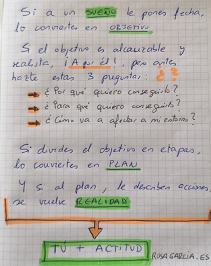 Si a un SUEÑO le pones fecha,
lo conviertes en OBJETIVO
Si el objetivo es alcanzable y
realista, ¡A por él!, pero antes
hazte estas 3 preguntas: ¿?
¿Por qué quiero conseguirlo?
¿Para qué quiero conseguirlo?
¿Cómo va a afectar a mi entorno?
Si divides el objetivo en etapas,
lo conviertes en PLAN
Y si al plan, le describes acciones,
se vuelve REALIDAD
TÚ + ACTITUD
ROSAGARCIA.ES